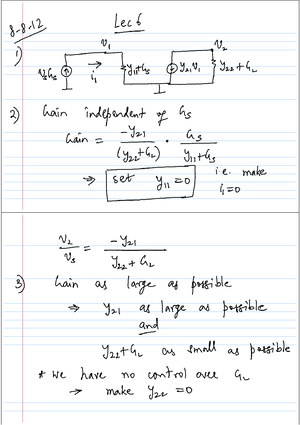 8-8-12
Lec 6
1)
V₁
V₂
VₛGₛ
i₁
y₁₁+Gₛ
y₂₁V₁
y₂₂+G_L
2) Gain independent of Gₛ
Gain = -y₂₁/(y₂₂+G_L) · Gₛ/(y₁₁+Gₛ)
⇒ set y₁₁=0 i.e. make
i₁=0
V₂/Vₛ = -y₂₁/(y₂₂+G_L)
3) Gain as large as possible
⇒ y₂₁ as large as possible
and
y₂₂+G_L as small as possible
* We have no control over G_L
→ make y₂₂ =0